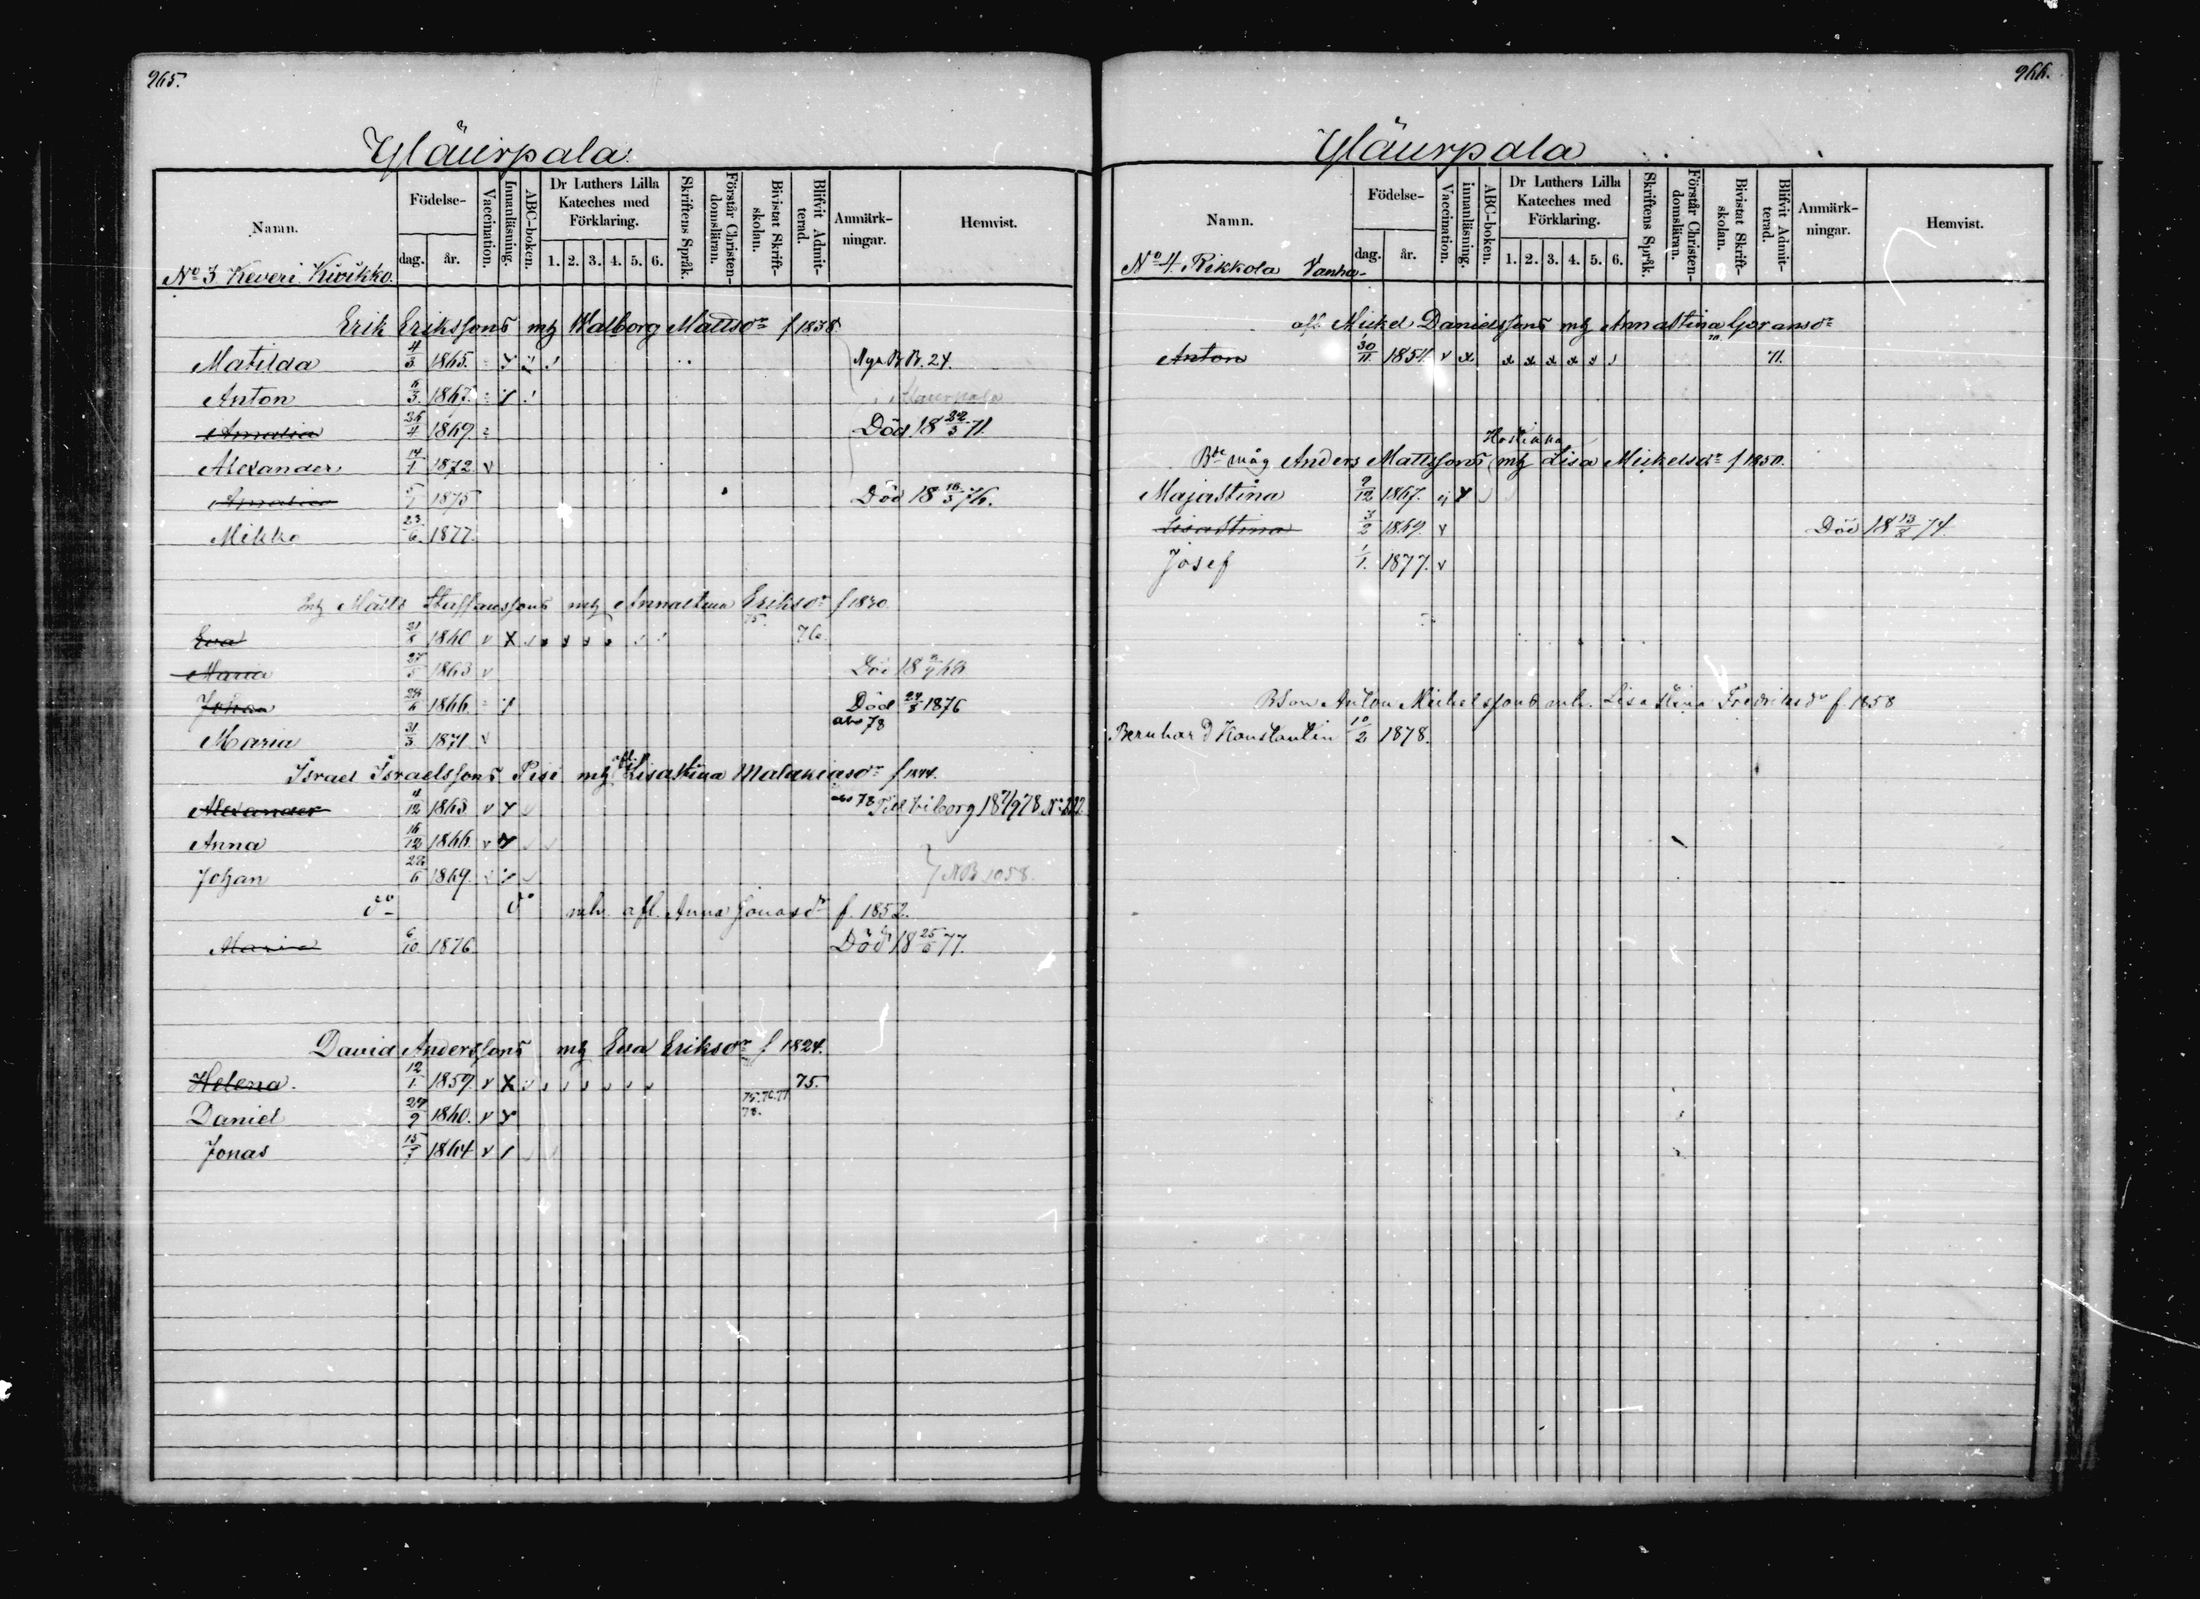 965.
Yläurpala
Namn.
Födelse-
dag. år.
Vaccination.
Innanläsning.
ABC-boken.
Dr Luthers Lilla Kateches med Förklaring.
1. 2. 3. 4. 5. 6.
Skriftens Språk.
Förstår Christendomsläran.
Bivistat Skriftskolan.
Blifvit Admitterad.
Anmärkningar.
Hemvist.
No 3 Keveri. Kivikko.
Erik Erikssons mh Walborg Mattsdr f 1838
Matilda 4/3 1865. Nya B. 24.
Anton 6/3 1867.
Amalia 26/4 1869. Död 18 22/3 71.
Alexander 14/1 1872 v
Amalia 5/1 1875 Död 18 16/3 76.
Mikko 23/6 1877.
Inh Matts Staffanssons mh Annastina Eriksdr f 1830.
75.
Eva 21/8 1860 v x 76.
Maria 27/5 1863 v Död 18
Johan 24/6 1866. Död 24/3 1876
abs 78
Maria 31/3 1871. v
Israel Israelssons Pisi mh afl. Lisastina Malakiasdr f 1844.
Alexander 4/12 1863 v abs 78 Till Viborg 18 7/9 78 No 222
Anna 16/12 1866. v
Johan 28/6 1869. NB 1058.
do do mh. afl. Anna Jonasdr f. 1852.
Maria 6/10 1876. Död 18 25/6 77.
David Anderssons mh Eva Eriksdr f 1824.
Helena. 12/1 1859. v x 75.
75. 76. 77
Daniel 27/9 1860. v 78.
Jonas 15/7 1864 v
966.
Yläurpala
Namn.
Födelse-
dag. år.
Vaccination.
innanläsning.
ABC-boken.
Dr Luthers Lilla Kateches med Förklaring.
1. 2. 3. 4. 5. 6.
Skriftens Språk.
Förstår Christendomsläran.
Bivistat Skriftskolan.
Blifvit Admitterad.
Anmärkningar.
Hemvist.
No 4. Rikkola Vanha-
afl. Mickel Danielssons mh Annastina Göransdr
Anton 30/11 1854. v x x x x x 71.
Hostikka
Bde måg Anders Mattssons mh Lisa Mickelsdr f 1850.
Majastina 9/12 1867. ej
Lisastina 3/2 1869. v Död 18 13/8 74.
Josef 1/1. 1877. v
BSon Anton Mickelssons mh. Lisa Stina Fredriksdr f. 1858
Bernhard Konstantin 10/2 1878.